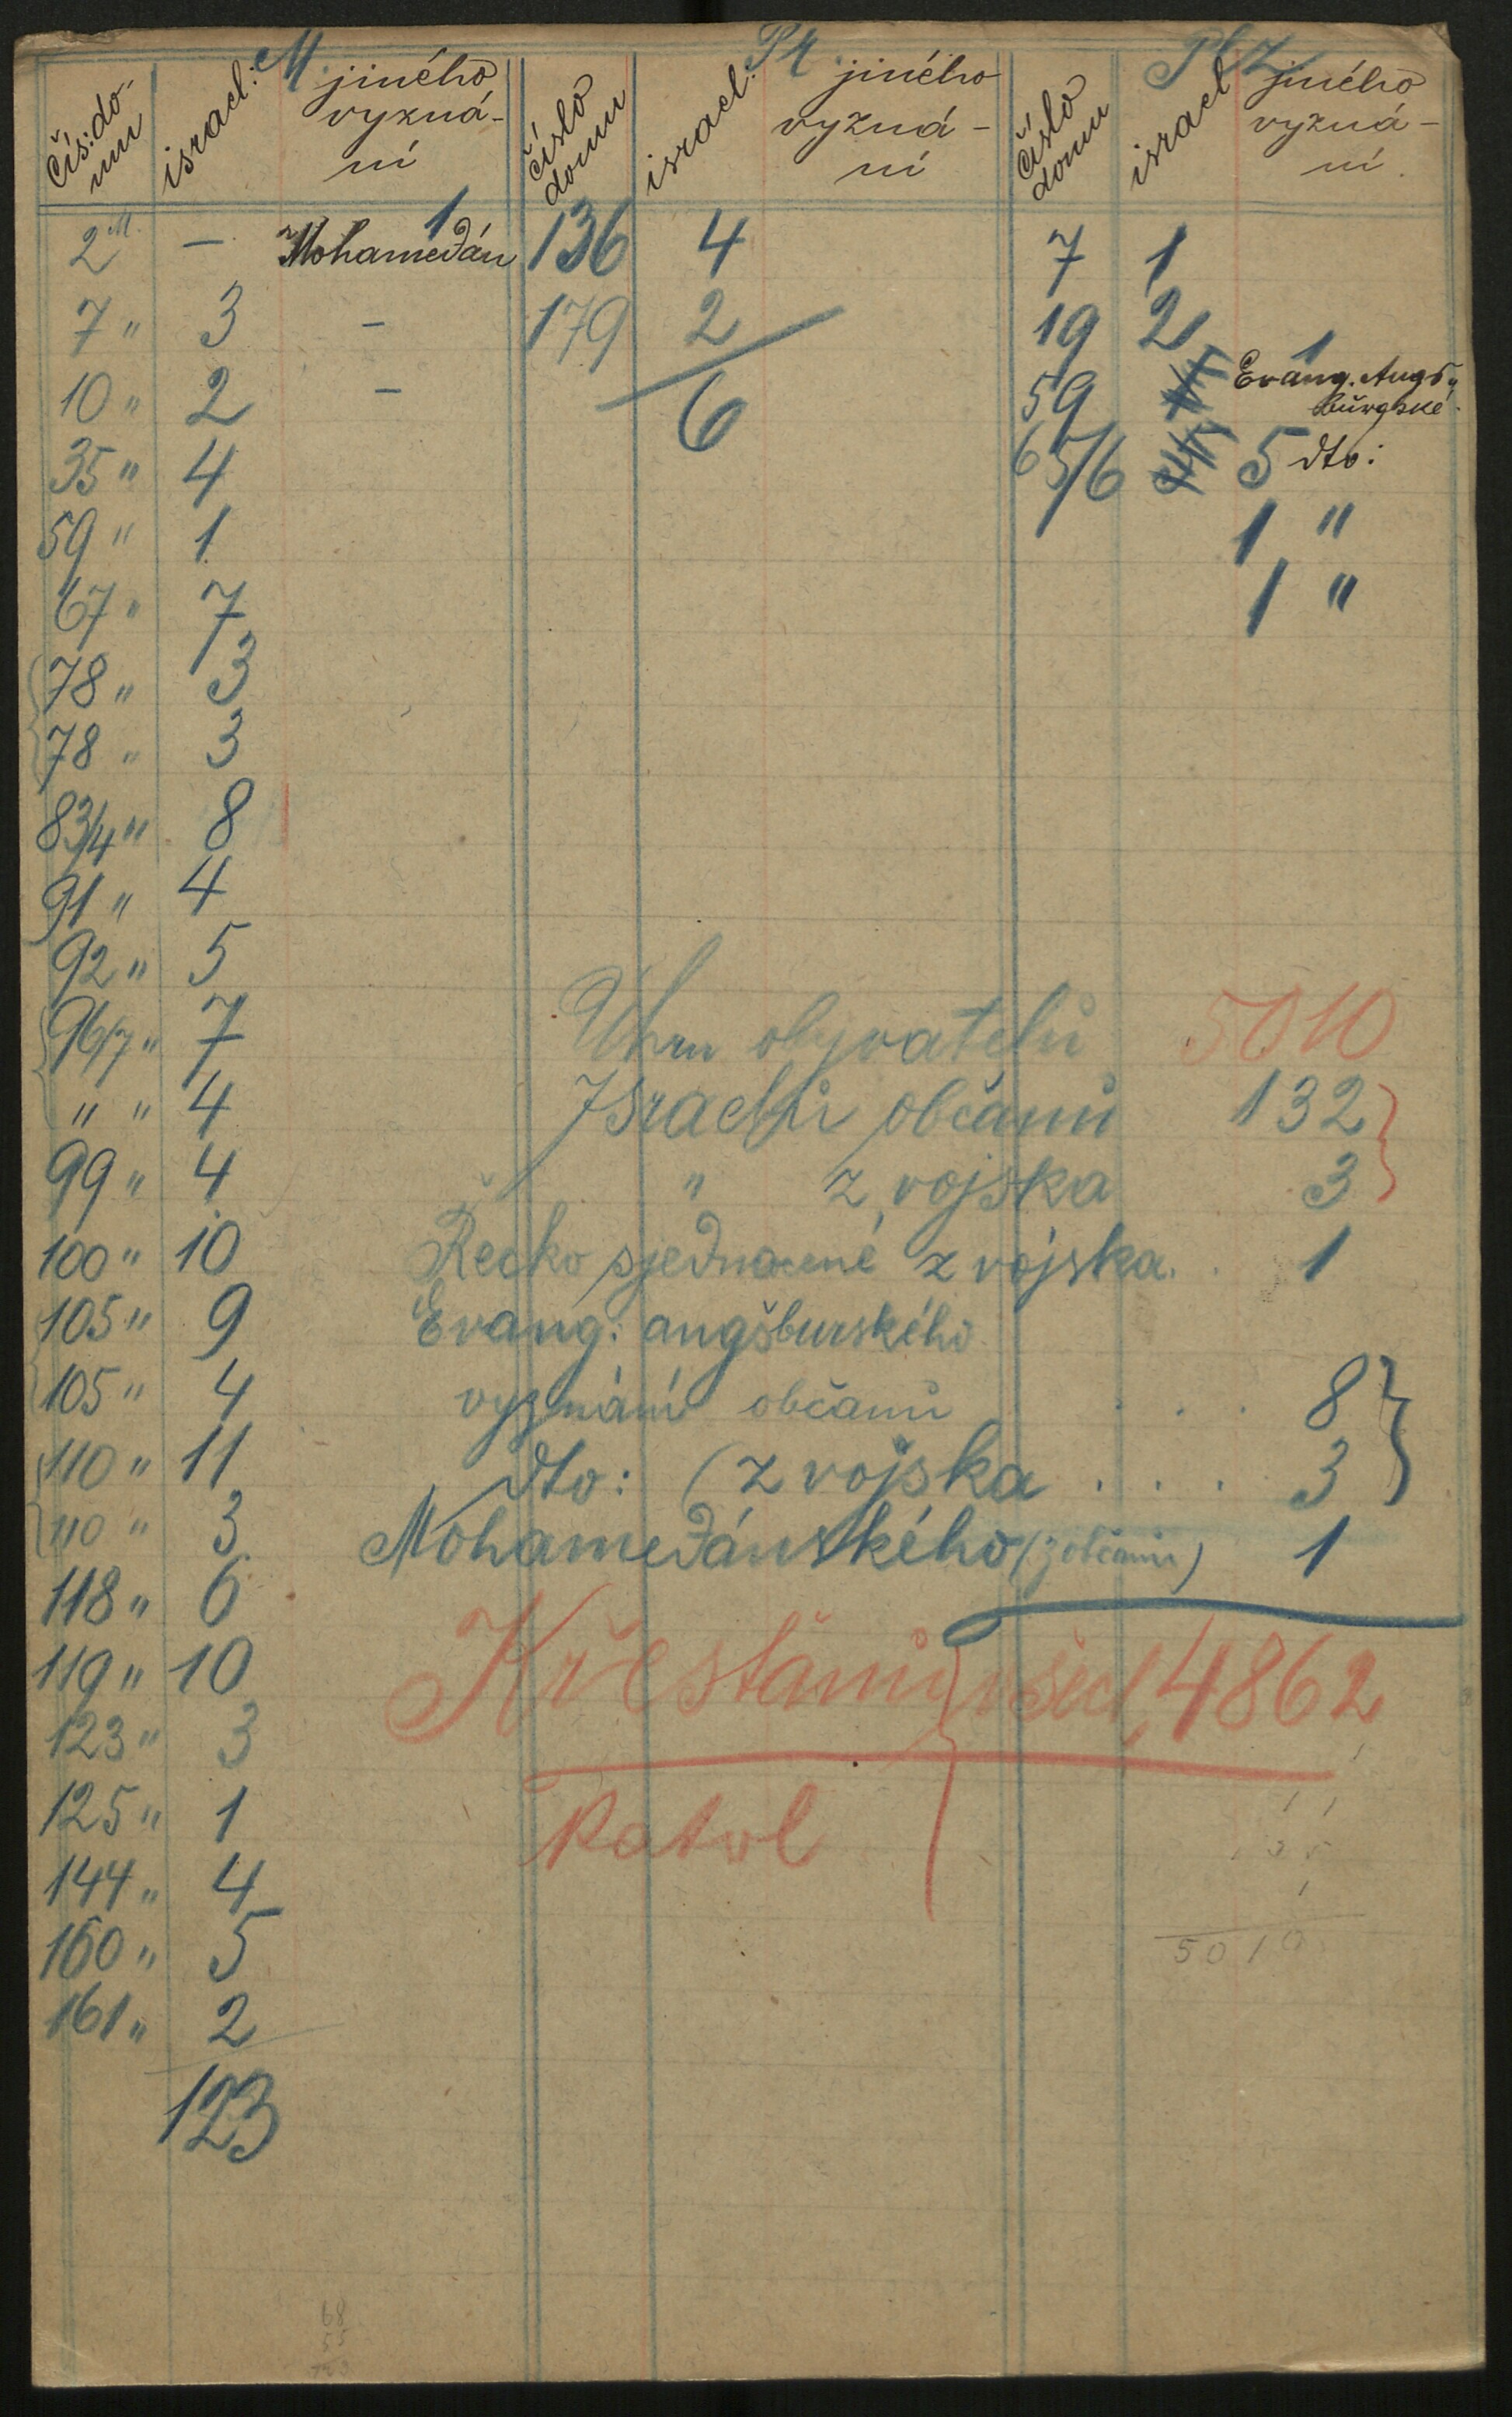 M. Pr. Plz
Čís: do- israel: jiného číslo israel: jiného číslo israel jiného
mu vyzná- domu vyzná- domu vyzná-
ní ní ní.
1
2 M. — Mohamedán 136 4 7 1
7 " 3 — 179 2 19 2
1
10 " 2 — 6 59 Evang. Augs"
burgské
35 " 4 65/6 5 dto:
59 " 1 1 "
67 " 7 1 "
78 " 3
78 " 3
83/4 " 8
91 " 4
92 " 5
96/7 " 7 Uhrn obyvatelů 5010
" " 4 Israelů občanů 132
99 " 4 " z vojska 3
100 " 10 Řecko sjednocené z vojska. 1
105 " 9 Evang: augšburského
105 " 4 vyznání občanů . . . 8
110 " 11 dto: (z vojska . . . 3
110 " 3 Mohamedánského (z občanů) 1
118 " 6
119 " 10 Křesťanů všech 4862
123 " 3
125 " 1 Katol
144 " 4
160 " 5 5010
161 " 2
123
68